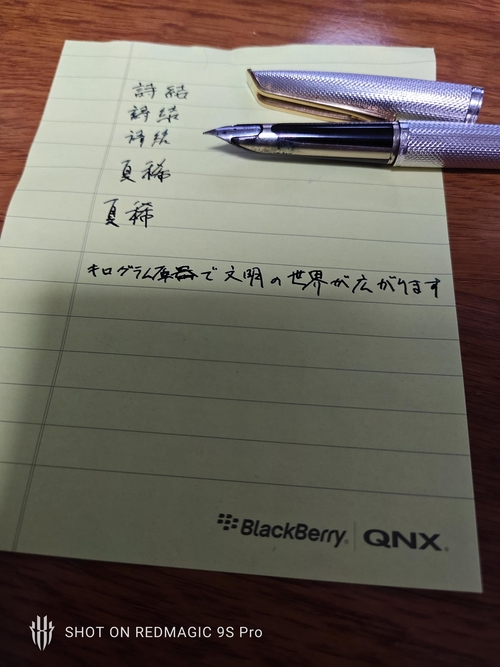 詩結
詩結
詩結
夏稀
夏稀
キログラム原器で文明の世界が広がります
BlackBerry | QNX
SHOT ON REDMAGIC 9S Pro